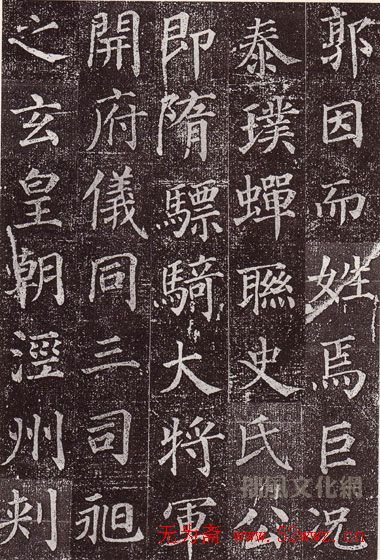 郭因而姓焉巨況
泰璞蟬聯史氏公
即隋驃騎大將軍
開府儀同三司昶
之玄皇朝涇州刾
風文化網
无为斋 www.52wwz.cn